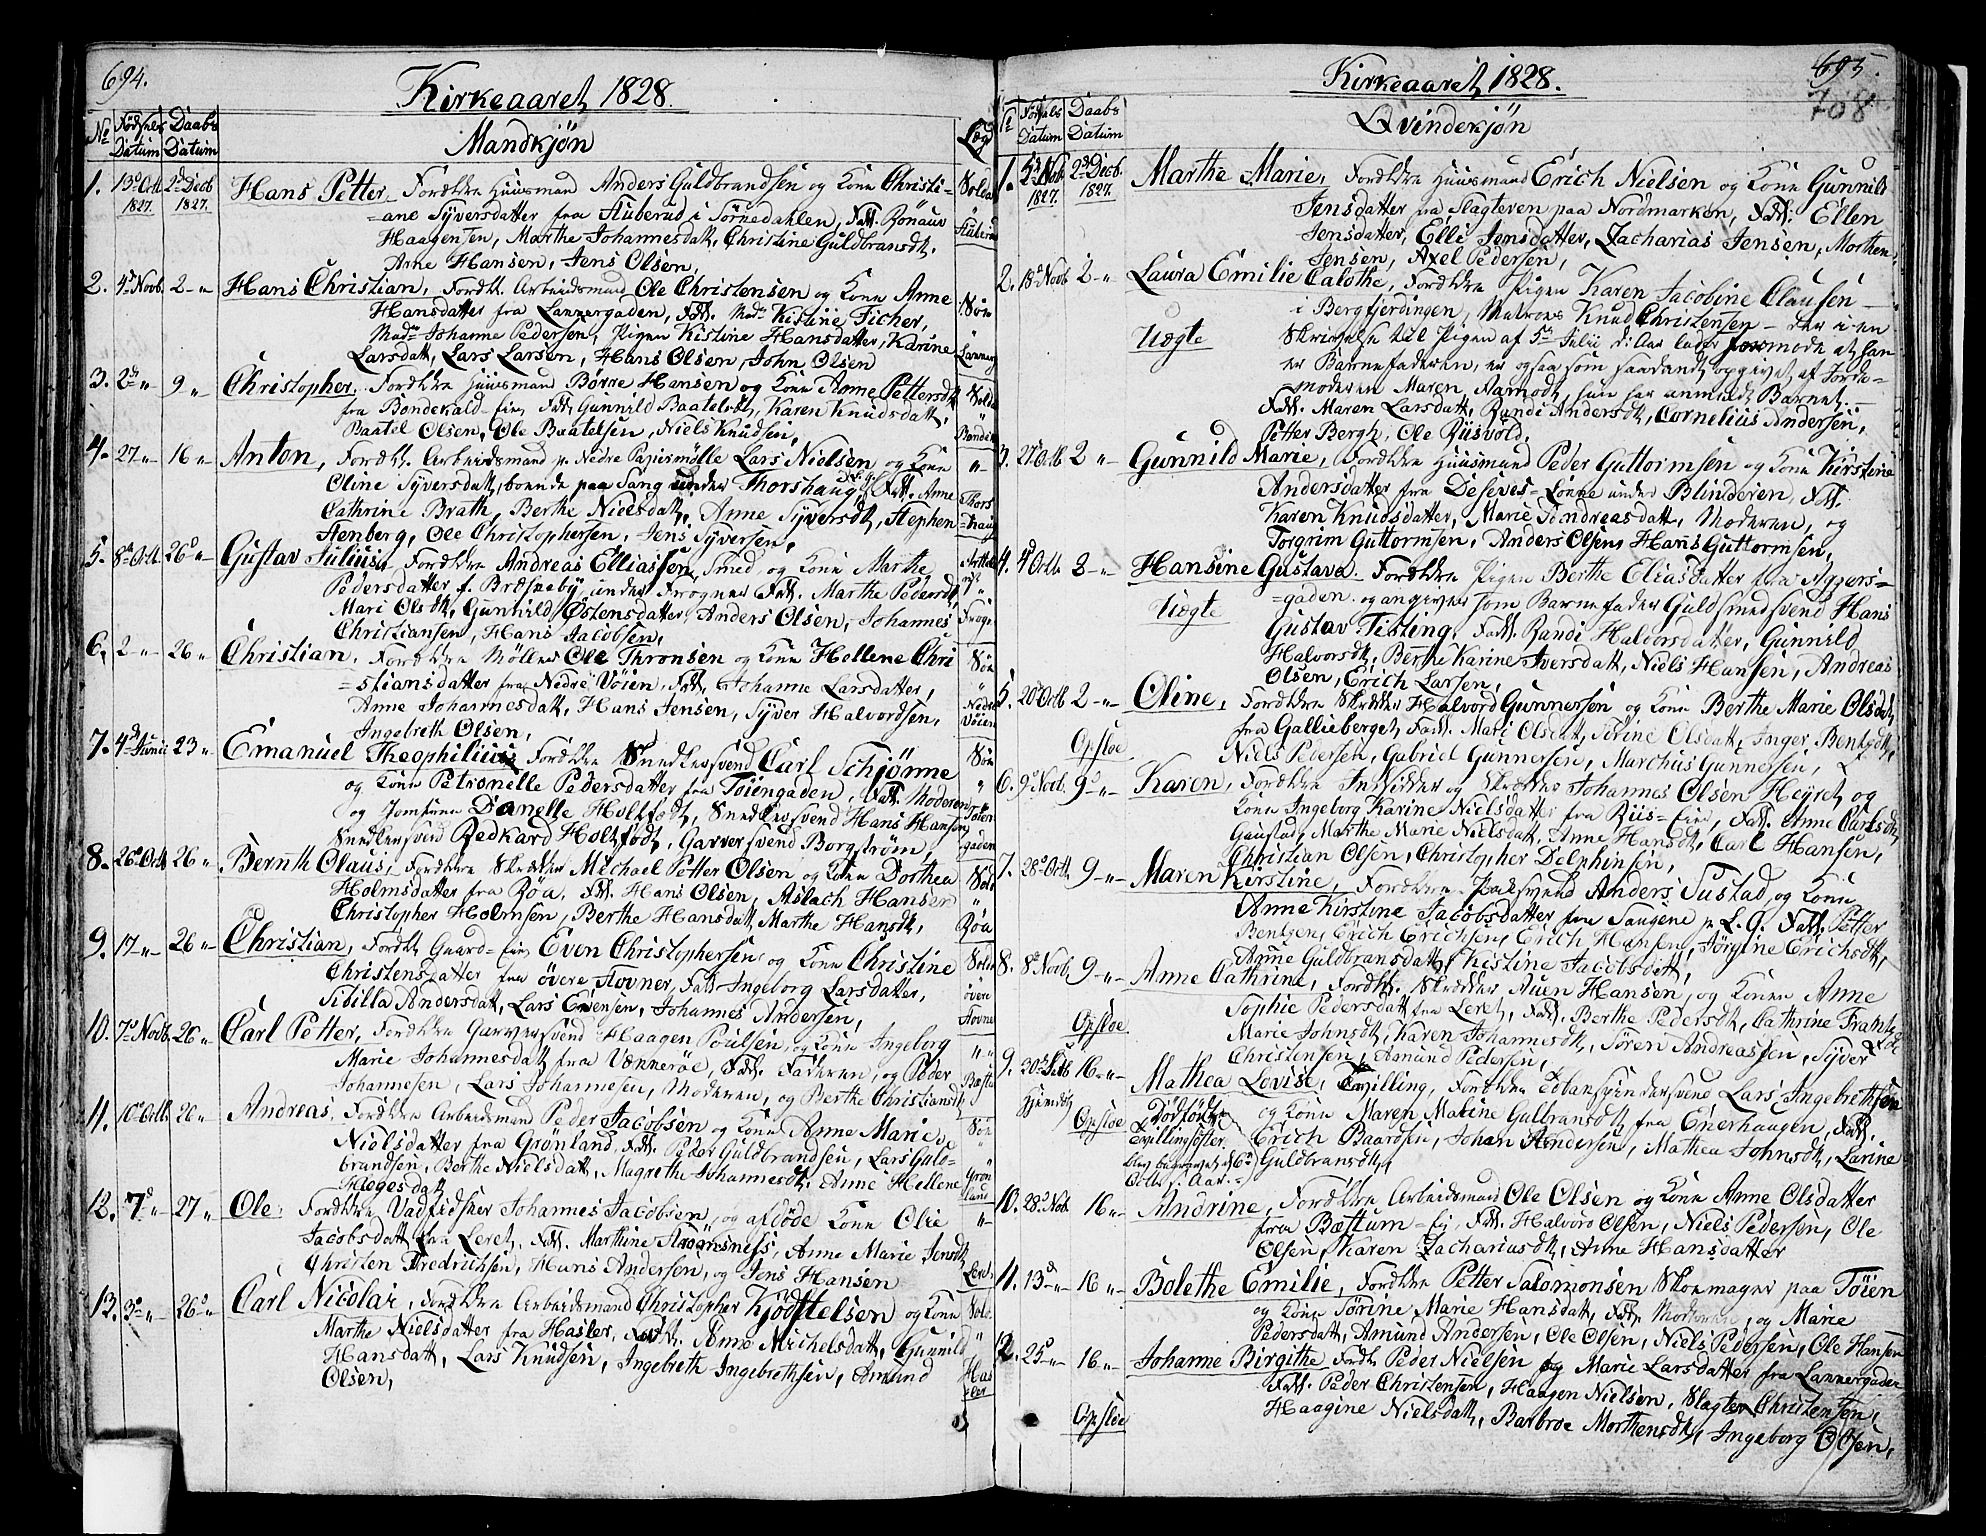 694.
Kirkeaaret 1828.
No Fødsels Datum Daabs Datum Mandkjøn Læg
1. 13d Oct. 1827. 2d Decb 1827. Hans Petter, Forældre Huusmand Anders Guldbrandsen og Kone Christi=
=ane Syversdatter fra Stuberud i Sørkedahlen, Fadd.
Haagensen, Marthe Johannesdatt, Christine Guldbransdt.
Arne Hansen, Jens Olsen,
2. 4d Novb. 2 -"- Hans Christian, Forældre Arbeidsmand Ole Christensen og Kone Anne
Hansdatter fra Lannergaden, Fadd. Madm Kistine Ficher,
Madm Johanne Pedersen, Pigen Kistine Hansdatter, Karine
Larsdatt, Lars Larsen, Hans Olsen, John Olsen
3. 2d " 9 " Christopher. Forældre Huusmand Børre Hansen og Kone Anne Pettersdt
fra Bondekald-Eie, Fadd. Gunnild Baatelsdt, Karen Knudsdatt,
Baatel Olsen, Ole Baatelsen, Niels Knudsen,
4. 27 " 16 " Anton, Forældre Arbeidsmand p. Nedre Papiermølle Lars Nielsen og Kone
Oline Syversdatt, boende paa Sang under Thorshaug, Fadd. Anne
Cathrine Brath, Berthe Nielsdatt, Anne Syversdt, Stephen
Stenberg, Ole Christophersen, Jens Syversen,
5. 8d Oct. 26d " Gustav Julius, Forældre Andreas Elliassen, Smed, og Kone Marthe
Pedersdatter f. Bræsneby under Frogner Fadd. Marthe Pedersdt
Mari Olsdt, Gunnild Østensdatter, Anders Olsen, Johannes
Christiansen, Hans Jacobsen,
6. 2 " 26 " Christian. Forældre Møller Ole Thronsen og Kone Hellene Chri
=stiansdatter fra Nedre Vøien, Fadd. Johanne Larsdatter,
Anne Johannesdatt, Hans Jensen, Syver Halvordsen,
Ingebreth Olsen,
7. 4d Junii 23 " Emanuel Theophilius Forældre Snedkersvend Carl Schjønne
og Kone Petronelle Pedersdatter fra Tøiengaden, Fadd. Moderen
og Jomfrue Danelle Holtfodt, Snedkersvend Hans Hansen
Snedkersvend Redkard Holtfodt, Garversvend Borgstrøm,
8. 26d Octb 26 " Bernth Claus, Forældre Skrædder Michael Petter Olsen og Kone Dorthea
Holmsdatter fra Røa, Fadd. Hans Olsen, Aslach Hansen
Christopher Holmsen, Berthe Hansdatt, Marthe Hansdt,
9. 17 -"- 26 " Christian, Forældre Gaard-Eier Even Christophersen og Kone Christine
Christensdatter fra øvere Stovner, Fadd. Ingeborg Larsdatter,
Sibilla Andersdatt, Lars Evensen, Johannes Andersen,
10. 7d Novb. 26 " Carl Petter, Forældre Garversvend Haagen Poulsen, og Kone Ingeborg
Marie Johannesdatt fra Vonnerøe, Fadd. Faderen, og Peder
Johannesen, Lars Johannesen, Moderen, og Berthe Christiansdt,
11. 10d Octb. 26 " Andreas, Forældre Arbeidsmand Peder Jacobsen og Kone Anne Marie
Nielsdatter fra Grønland, Fadd. Peder Guldbrandsen, Lars Guld=
brandsen, Berthe Nielsdatt, Magrethe Johannesdt, Anne Hellene
12. 7d " 27 " Ole, Forældre Johannes Jacobsen, og afdøde Kone Olie
Jacobsdatt fra Leret, Fadd. Marthine Strømsness, Anne Marie Jensdt
Christen Fredrichsen, Hans Andersen, og Jens Hansen
13. 3d " 26d " Carl Nicolai, Forældre Arbeidsmand Christopher Kjødttelsen og Kone
Marthe Nielsdatter fra Hasler, Fadd. Anne Michelsdatt, Gunnild
Hansdatt, Lars Knudsen, Ingebreth Ingebrethsen, Amund
Olsen,
695.
708
Kirkeaaret 1828.
Fødsels Datum Daabs Datum Qvindekjøn
1. 5d Novb. 1827. 2d Decb. 1827. Marthe Marie, Forældre Huusmand Erich Nielsen og Kone Gunnild
Jensdatter fra Slagteren paa Nordmarken, Fadd. Ellen
Jensdatter, Elli Jensdatter, Zacharias Jensen, Morthen
Jensen, Axel Pedersen,
2. 18d Novb 2 -"- Laura Emilie Calothe, Forældre Pigen Karen Jacobine Clausen
i Bergfjerdingen, Matros Knud Christensen - der i en
Uægte Skrivelse til Pigen af 5te Julii d: Aar lader formode at han
er Barnefaderen, er ogsaa som saadan opgivet af Jorde=
moderen Maren Aamodt, hun har anmeldt Barnet. -
Fadd. Maren Larsdatt, Randi Andersdt, Cornelius Andersen,
Petter Bergh, Ole Riisvold,
3. 27d Octb 2 " Gunnild Marie, Forældre Huusmand Peder Guttormsen og Kone Kirstine
Andersdatter fra Deseves-Lønne under Blinderen, Fadd.
Karen Knudsdatter, Marie Andreasdatt, Moderen, og
Torgrim Guttormsen, Anders Olsen, Hans Guttormsen,
4. 4d Octb. 2 -"- Hansine Gustava. Forældre Pigen Berthe Eliasdatter fra Aggers=
=gaden og angiver som Barnefader Guldsmedsvend Hans
Uægte Gustav Tisting, Fadd. Randi Haldorsdatter, Gunnild
Halvorsdt, Berthe Karine Iversdatt, Niels Hansen, Andreas
Olsen, Erich Larsen,
5. 20d Octb 2 -"- Oline, Forældre Skrædder Halvord Gunnersen og Kone Berthe Marie Olsdatt
fra Gallieberget, Fadd. Mari Olsdatt, Serine Olsdatt, Inger Bentsdt,
Opsloe Niels Pedersen, Gabriel Gunnersen, Marthus Gunnersen,
6. 9d Novb. 9d -"- Karen, Forældre Inderster og Skrædder Johannes Olsen Heyret og
Kone Ingeborg Karine Nielsdatter fra Riis-Eie, Fadd. Anne Carlsdt,
Gaustad, Marthe Marie Nielsdatt, Anne Hansdt, Carl Hansen,
Christian Olsen, Christopher Delphinsen,
7. 28d Octb. 9 -"- Maren Kirstine, Forældre Anders Sustad og Kone
Anne Kirstine Jacobsdatter fra Saugene p. L. G. Fadd. Petter
Bentsen, Erich Erichsen, Erich Hansen, Jørgine Erichsdt,
Anne Guldbransdatt, Kistine Jacobsdatt,
8. 8d Novb. 9 -"- Anne Cathrine, Forældre Skrædder Auen Hansen, og Konen Anne
Sophie Pedersdatt fra Leret, Fadd. Berthe Pedersdt, Cathrine Frantz
Opsloe Marie Johnsdt, Karen Johannesdt, Søren Andreassen, Syver
Christensen, Asmund Pedersen,
9. 16 -"- Mathea Lovise, Tvilling, Forældre Tobakspindersvend Lars Ingebrethsen
Opsloe Dødfødte Tvillingsøster blev begravet d 6d Octbr s: Aar. - og Kone Maren Matine Gulbransdt fra Enerhaugen, Fadd.
Erich Baardsen, Johan Andersen, Mathea Johnsdt, Larine
Guldbransdt,
10. 28d Nob. 16 " Andrine, Forældre Arbeidsmand Ole Olsen og Kone Anne Olsdatter
fra Bæstum-Eie, Fadd. Halvord Olsen, Niels Pedersen, Ole
Olsen, Karen Zachariasdt, Anne Hansdatter
11. 13d -"- 16 " Bolethe Emilie, Forældre Petter Salomonsen Skoemager paa Tøien
og Kone Sørine Marie Hansdatt, Fadd. Moderen, og Marie
Pedersdatt, Amund Andersen, Ole Olsen, Niels Pedersen, Ole Hansen
12. 25d -"- 16 " Johanne Birgithe Forældre Peder Nielsen og Marie Larsdatter fra Lannergaden
Fadd. Peder Christensen, Haagen Nielsen, Slagter Christensen,
Opsloe Haagine Nielsdatt, Barbroe Morthensdt, Ingeborg Olsen,